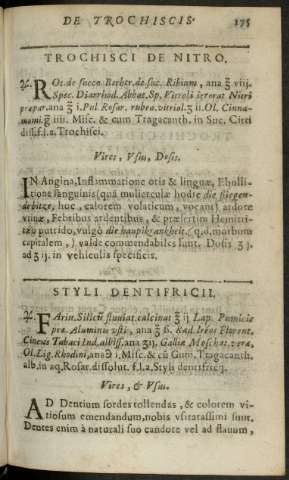 DE TROCHISCIS. 175
TROCHISCI DE NITRO.
℞. ROt. de succo Berber. de suc. Ribium, ana ℥ viij.
Spec. Diarrhod. Abbat. Sp. Vitrioli Nitri
præpar. ana ℥ i. Pul. Rosar. rubra. vitriol. ʒ ii. Ol. Cinna-
momi. iiii. Misc. & cum Tragacanth. in Suc. Citri
diss. f. l. a. Trochisci.
Vires, Usus, Dosis.
IN Angina, Inflammatione oris & linguæ, Ebulli-
tione sanguinis (quâ mulierculæ hodie die fliegen-
de hitze, huc, calorem volaticum, vocant) ardore
vrinæ, Febribus ardentibus, & præsertim Hemitri-
tæo putrido, vulgò die hauptkranckheit (q.d. morbum
capitalem,) valde commendabiles sunt. Dosis ʒ j.
ad ʒ ij. in vehiculis specificis.
STYLI DENTIFRICII.
℞. FArin. Silicũ calcinat ʒ ij Lap. Pumicis
præ. Aluminis vsti, ana ʒ ß. Rad. Ireos Florent.
Cineris Tabaci Ind. albiss. ana ʒ ij, Galliæ Moschat. veræ,
Ol. Lig. Rhodini, ana ℈ i, Misc. & cũ Gum. Tragacanth.
alb. in aq. Rosar. dissolut. f. l. a. Styli dentifricij.
Vires, & Usus.
AD Dentium sordes tollendas, & colorem vi-
tiosum emendandum, nobis vsitatissimi sunt.
Dentes enim à naturali suo candore vel ad flavum,